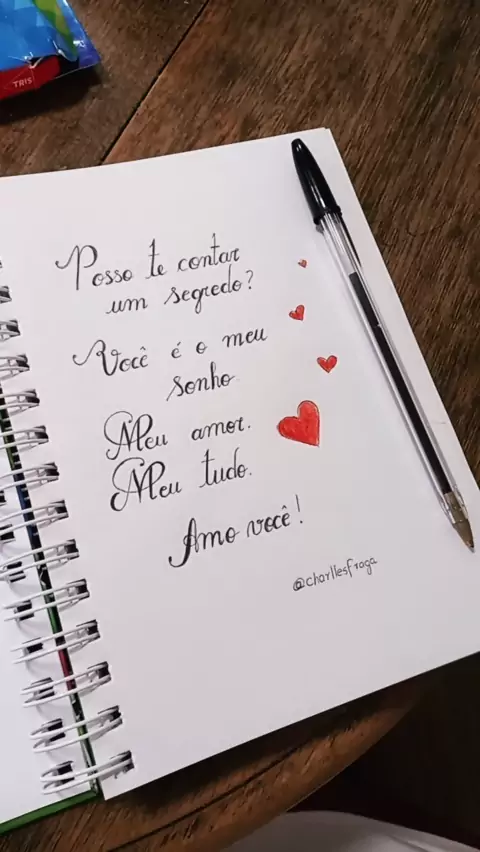 TRIS
Posso te contar
um segredo?
Você é o meu
sonho.
Meu amor.
Meu tudo.
Amo você!
@charllesfroga